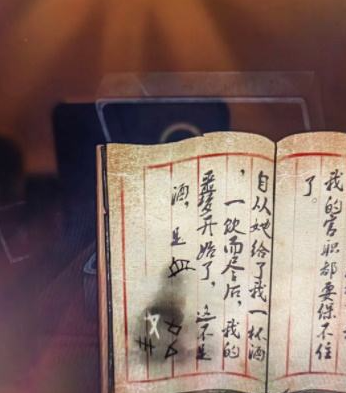 我的官职都要保不住
了。
自从她给了我一杯酒
，一饮而尽后，我的
噩梦开始了，这不是
酒，是血